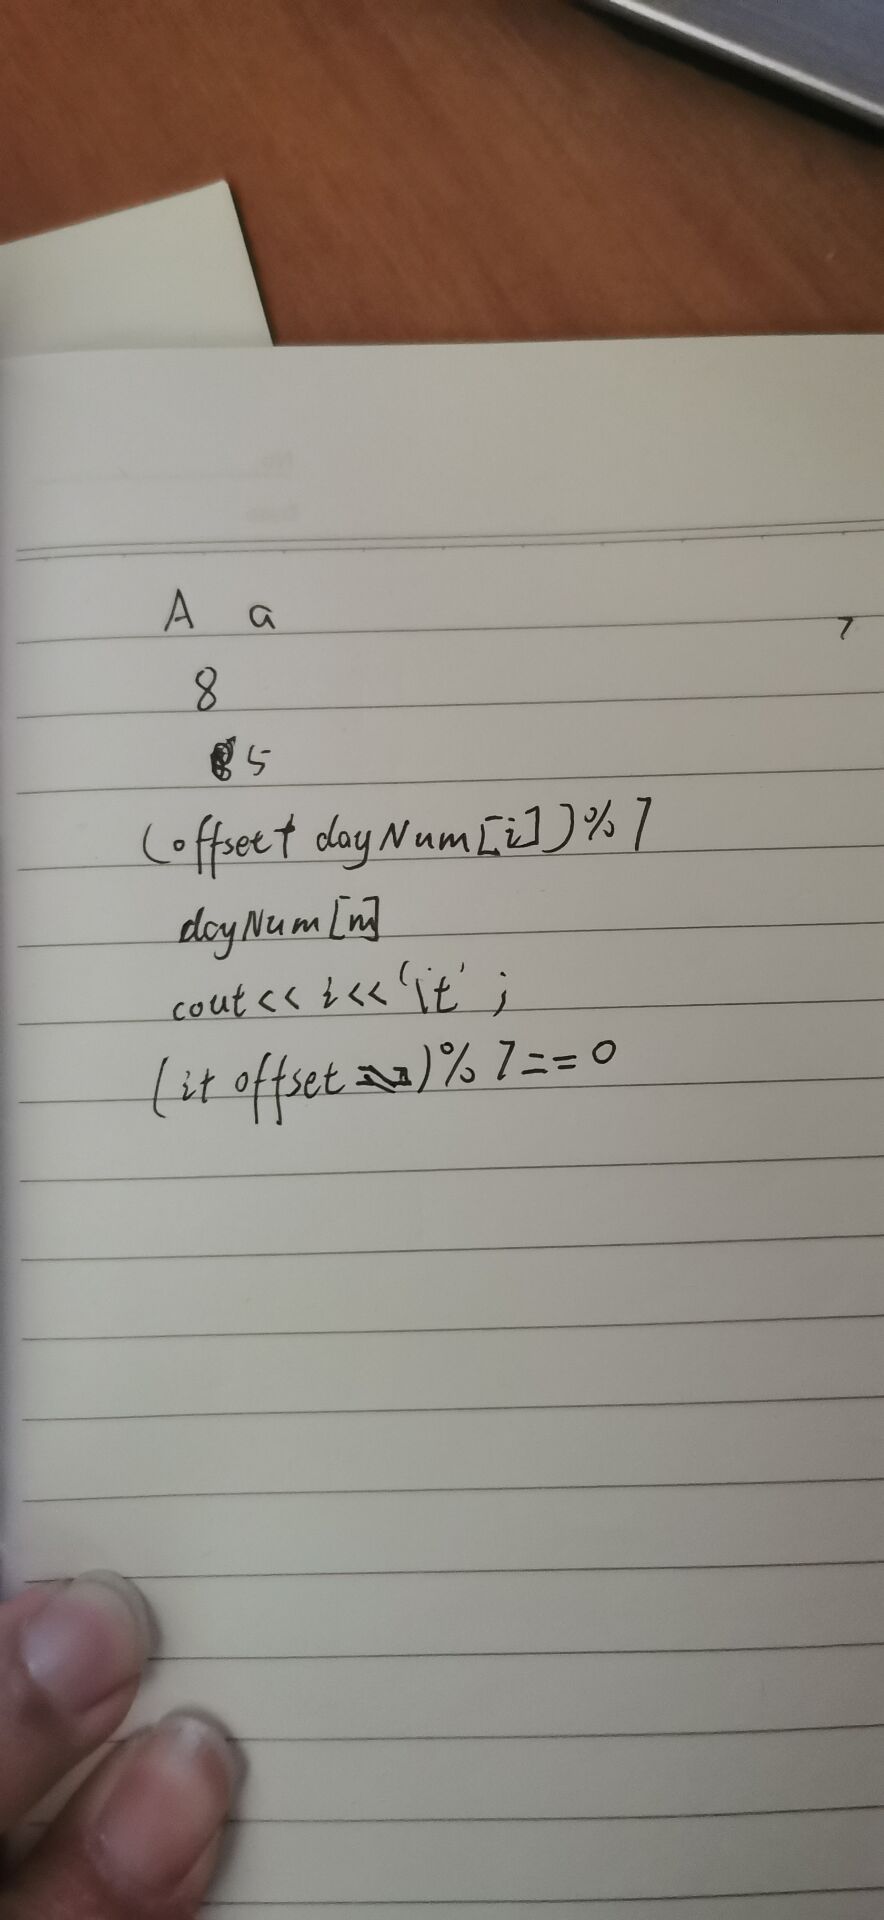 A a
7
8
5
(offset+ dayNum[i])%7
dayNum[m]
cout<< i<<'\t' ;
(i+ offset )%7==0